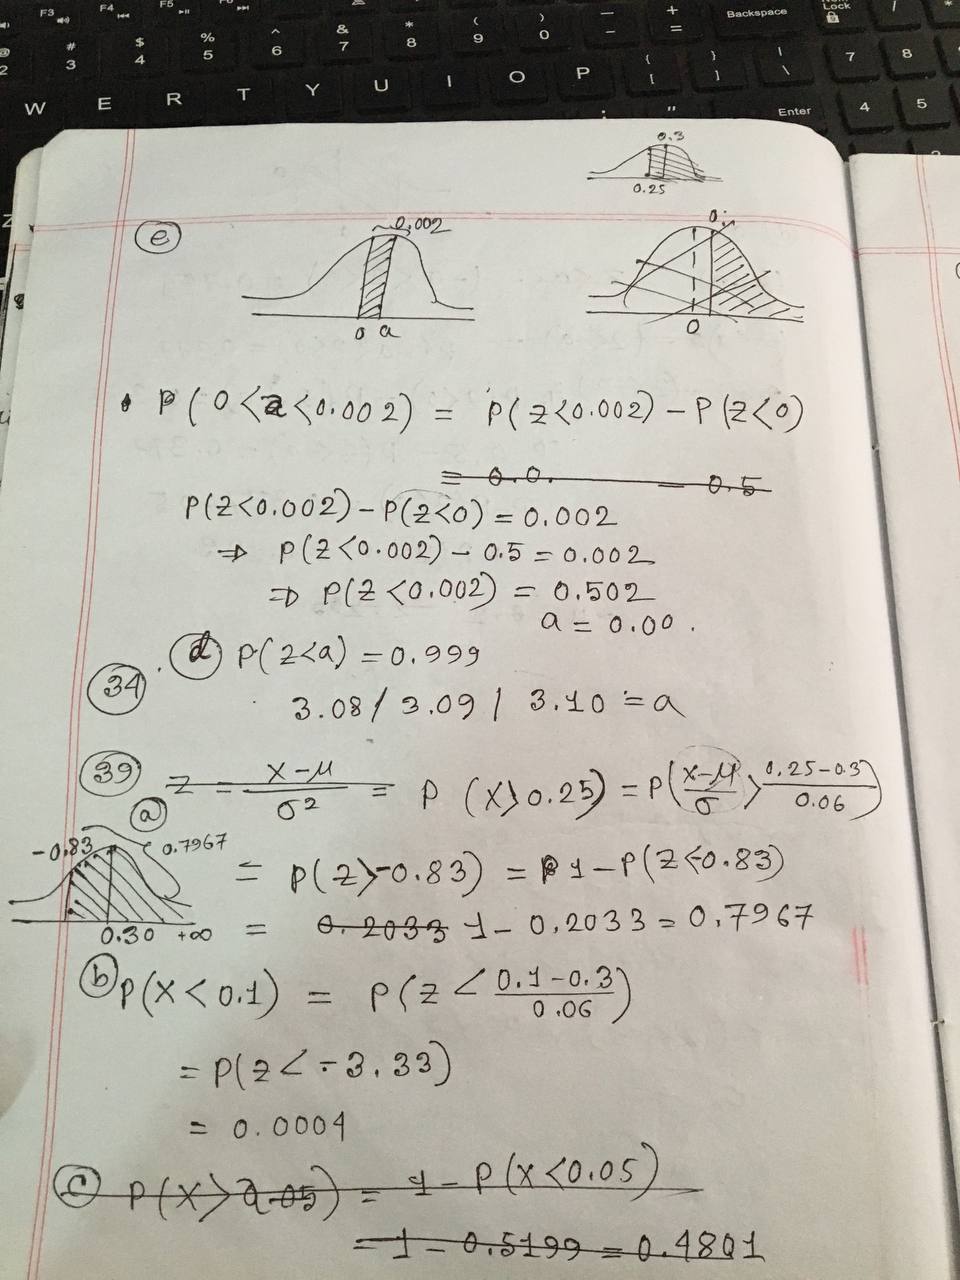 F3 F4 F5
Backspace
Lock
# 3 $ 4 % 5 ^ 6 & 7 * 8 ( 9 ) 0 — – + = 7 8
W E R T Y U I O P { [ } ] | \ 4 5
: ; " Enter
0.3
0.25
(e) 0.002
0 a
0
P(0<a<0.002) = P(Z<0.002) - P(Z<0)
= 0.0. - 0.5
P(Z<0.002) - P(Z<0) = 0.002
⇒ P(Z<0.002) - 0.5 = 0.002
⇒ P(Z<0.002) = 0.502
a = 0.00.
(34) (d) P(Z<a) = 0.999
3.08 / 3.09 / 3.10 = a
(39) (a) Z = X-μ/σ² = P(X>0.25) = P(X-μ/σ > 0.25-0.3/0.06)
-0.83 0.7967 = P(Z>-0.83) = 1-P(Z<-0.83)
0.30 +∞ = 0.2033 1-0.2033 = 0.7967
(b) P(X<0.1) = P(Z < 0.1-0.3/0.06)
= P(Z<-3.33)
= 0.0004
(c) P(X>0.05) = 1 - P(X<0.05)
= 1 - 0.5199 = 0.4801